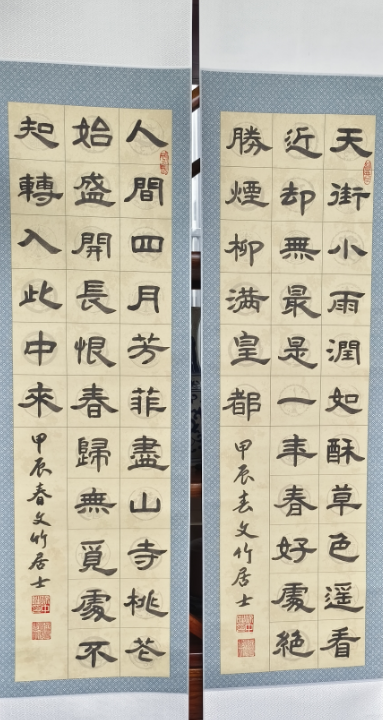 天街小雨潤如酥草色遙看
近却無最是一年春好處絕
勝煙柳滿皇都
甲辰春文竹居士
人間四月芳菲盡山寺桃花
始盛開長恨春歸無覓處不
知轉入此中來
甲辰春文竹居士